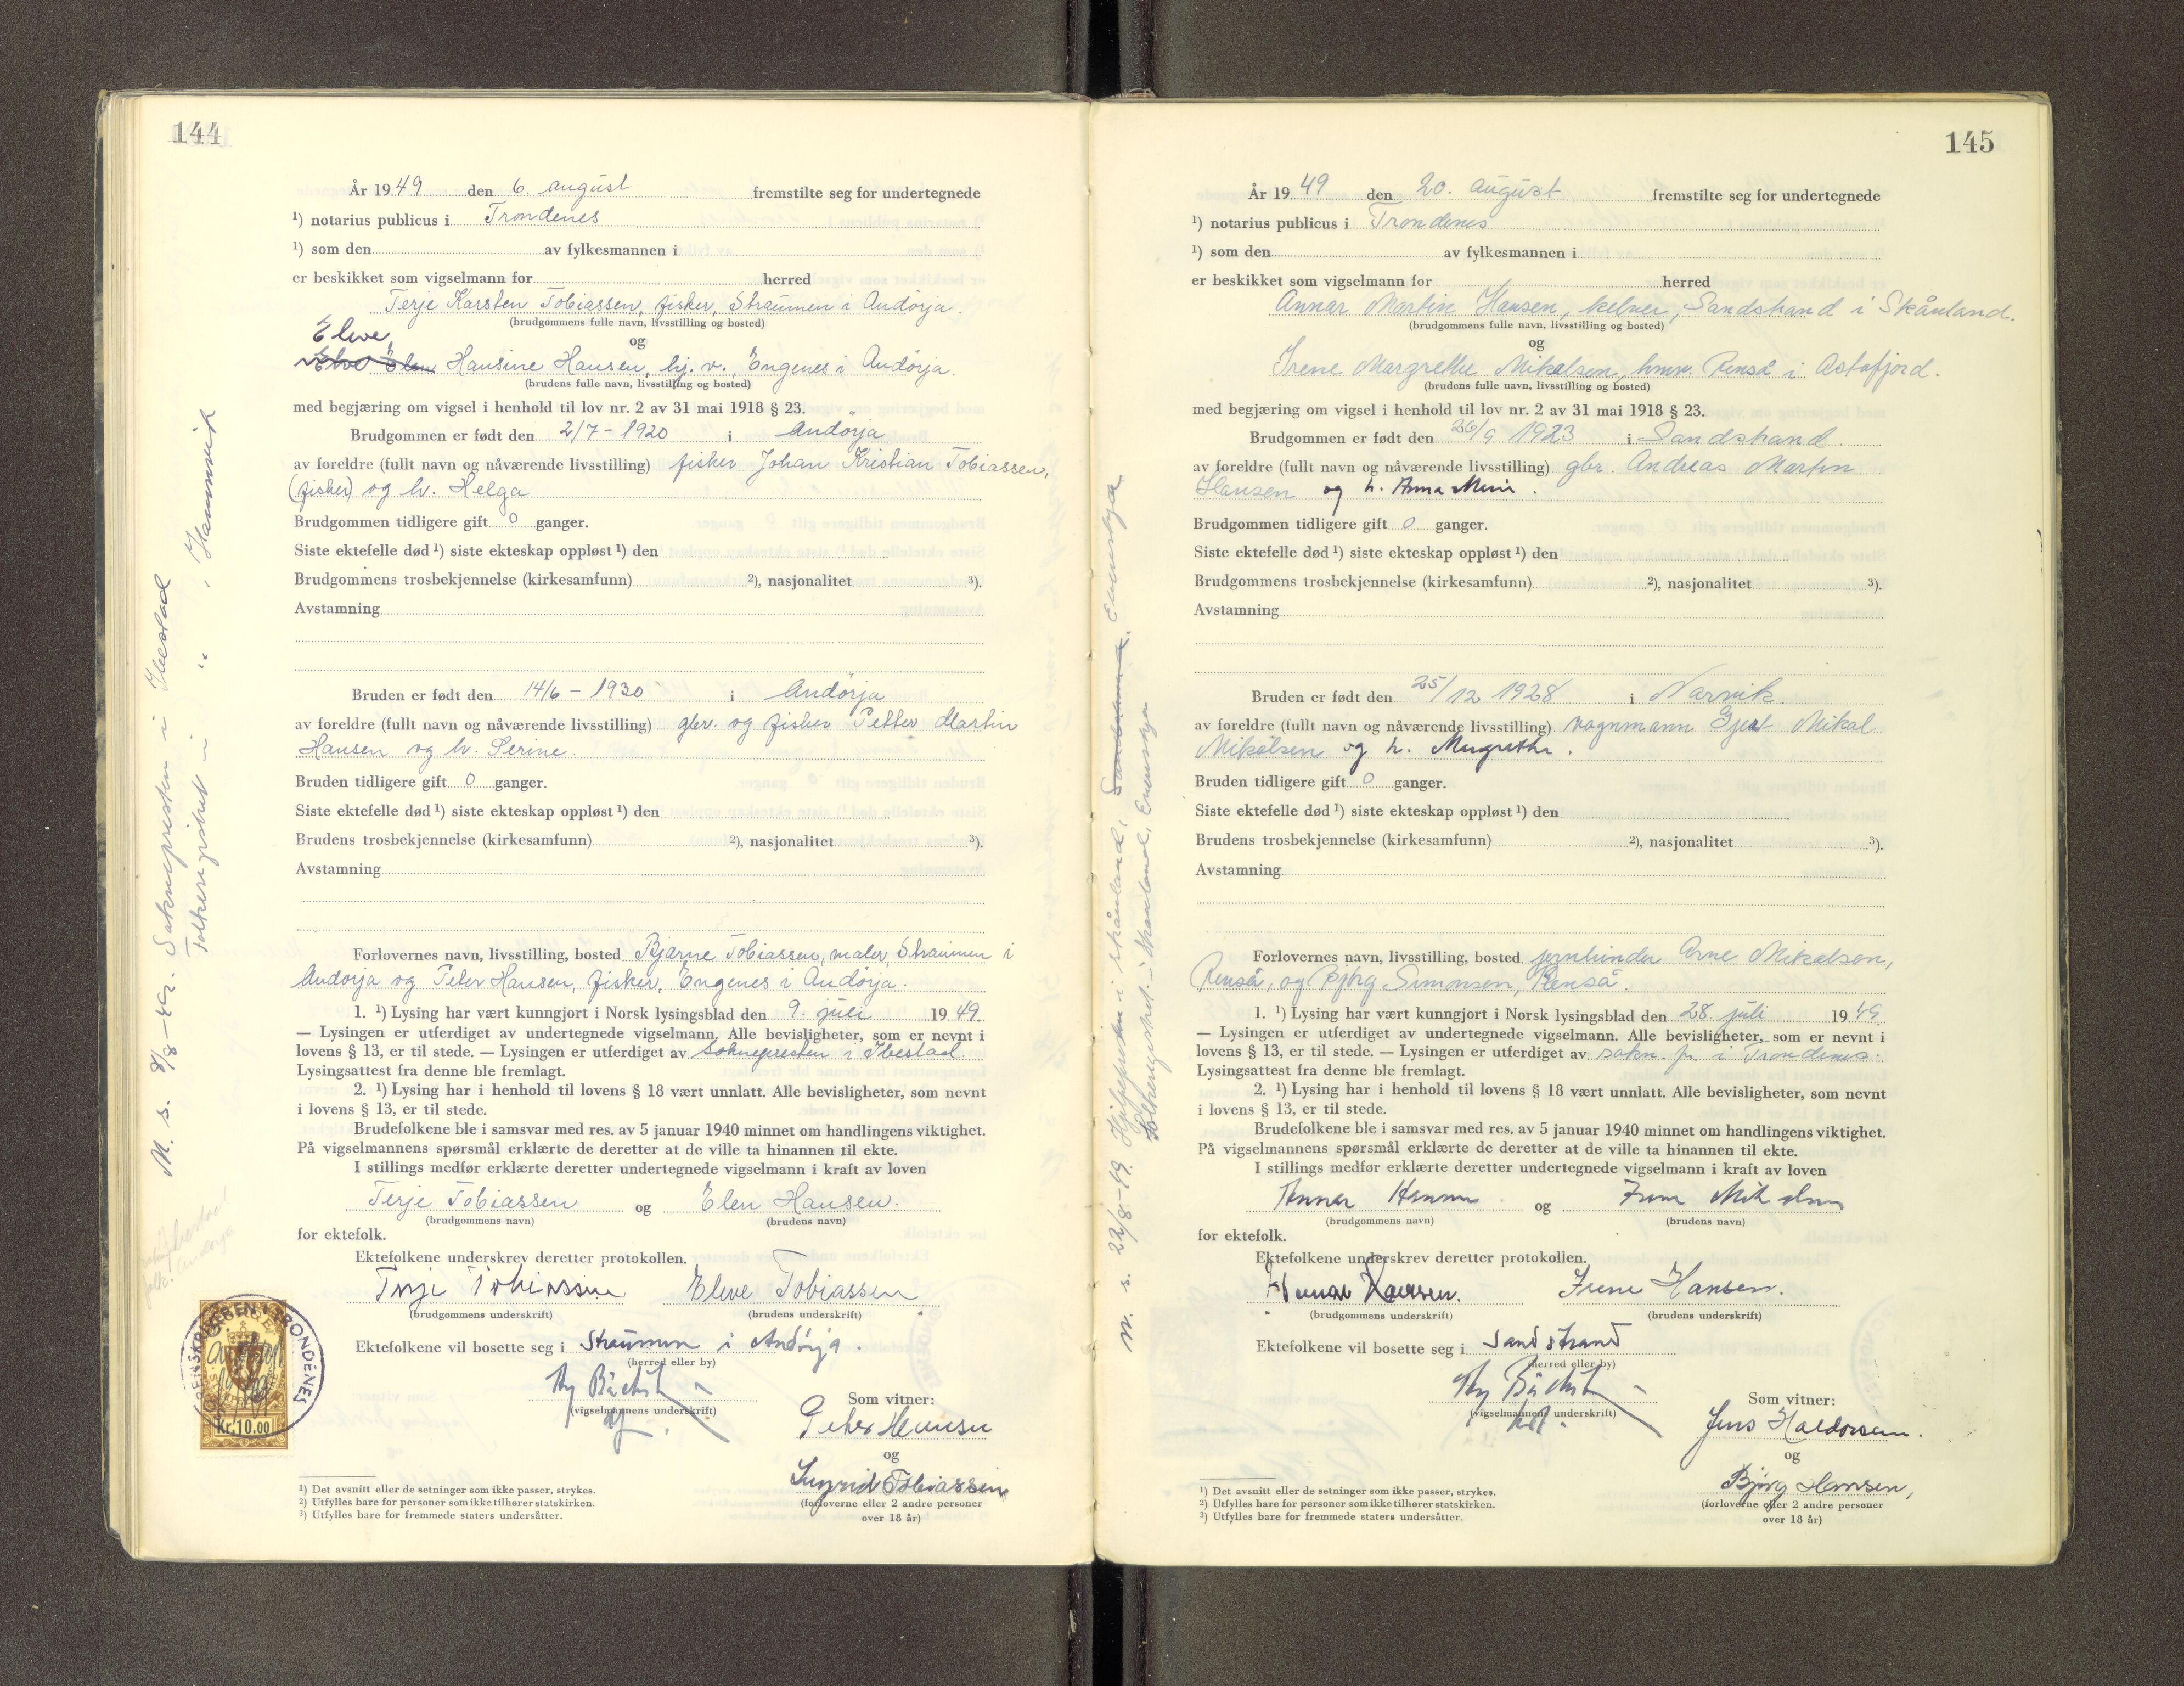 144
År 1949 den 6. august fremstilte seg for undertegnede
¹) notarius publicus i Trondenes
¹) som den av fylkesmannen i
er beskikket som vigselmann for herred
Terje Karsten Tobiassen, fisker, Straumen i Andørja.
(brudgommens fulle navn, livsstilling og bosted)
Elove
og
Elen Hansine Hansen, hj. v., Engenes i Andørja.
(brudens fulle navn, livsstilling og bosted)
med begjæring om vigsel i henhold til lov nr. 2 av 31 mai 1918 § 23.
Brudgommen er født den 2/7 - 1920 i Andørja
av foreldre (fullt navn og nåværende livsstilling) fisker Johan Kristian Tobiassen,
(fisker) og h. Helga
Brudgommen tidligere gift 0 ganger.
Siste ektefelle død ¹) siste ekteskap oppløst ¹) den
Brudgommens trosbekjennelse (kirkesamfunn) ²), nasjonalitet ³).
Avstamning
Bruden er født den 14/6 - 1930 i Andørja
av foreldre (fullt navn og nåværende livsstilling) gbr. og fisker Petter Martin
Hansen og h. Serine.
Bruden tidligere gift 0 ganger.
Siste ektefelle død ¹) siste ekteskap oppløst ¹) den
Brudens trosbekjennelse (kirkesamfunn) ²), nasjonalitet ³).
Avstamning
Forlovernes navn, livsstilling, bosted Bjarne Tobiassen, maler, Straumen i
Andørja og Peter Hansen, fisker, Engenes i Andørja.
1. ¹) Lysing har vært kunngjort i Norsk lysingsblad den 9. juli 1949.
— Lysingen er utferdiget av undertegnede vigselmann. Alle bevisligheter, som er nevnt i
lovens § 13, er til stede. — Lysingen er utferdiget av soknepresten i Ibestad.
Lysingsattest fra denne ble fremlagt.
2. ¹) Lysing har i henhold til lovens § 18 vært unnlatt. Alle bevisligheter, som nevnt
i lovens § 13, er til stede.
Brudefolkene ble i samsvar med res. av 5 januar 1940 minnet om handlingens viktighet.
På vigselmannens spørsmål erklærte de deretter at de ville ta hinannen til ekte.
I stillings medfør erklærte deretter undertegnede vigselmann i kraft av loven
Terje Tobiassen og Elen Hansen.
(brudgommens navn) (brudens navn)
for ektefolk.
Ektefolkene underskrev deretter protokollen.
Terje Tobiassen Elove Tobiassen
(brudgommens underskrift) (brudens underskrift)
Ektefolkene vil bosette seg i Straumen i Andørja.
(herred eller by)
(vigselmannens underskrift)
Som vitner:
Peter Hansen
og
Ingrid Tobiassen
(forloverne eller 2 andre personer
over 18 år)
¹) Det avsnitt eller de setninger som ikke passer, strykes.
²) Utfylles bare for personer som ikke tilhører statskirken.
³) Utfylles bare for fremmede staters undersåtter.
M. s. 8/8-49. Soknepresten i Ibestad
Folkeregistret i " , Hamnvik
SORENSKRIVEREN I TRONDENES
Kr. 10.00
145
År 1949 den 20. august fremstilte seg for undertegnede
¹) notarius publicus i Trondenes
¹) som den av fylkesmannen i
er beskikket som vigselmann for herred
Annar Martin Hansen, kelner, Sandstrand i Skånland.
(brudgommens fulle navn, livsstilling og bosted)
og
Irene Margrethe Mikalsen, hmv. Renså i Astafjord.
(brudens fulle navn, livsstilling og bosted)
med begjæring om vigsel i henhold til lov nr. 2 av 31 mai 1918 § 23.
Brudgommen er født den 26/9 1923 i Sandstrand.
av foreldre (fullt navn og nåværende livsstilling) gbr. Andreas Martin
Hansen og h. Anna Marie.
Brudgommen tidligere gift 0 ganger.
Siste ektefelle død ¹) siste ekteskap oppløst ¹) den
Brudgommens trosbekjennelse (kirkesamfunn) ²), nasjonalitet ³).
Avstamning
Bruden er født den 25/12 1928 i Narvik.
av foreldre (fullt navn og nåværende livsstilling) vognmann Gjert Mikal
Mikalsen og h. Margrethe.
Bruden tidligere gift 0 ganger.
Siste ektefelle død ¹) siste ekteskap oppløst ¹) den
Brudens trosbekjennelse (kirkesamfunn) ²), nasjonalitet ³).
Avstamning
Forlovernes navn, livsstilling, bosted jernbinder Arne Mikalsen,
Renså, og Bjørg Simonsen, Renså.
1. ¹) Lysing har vært kunngjort i Norsk lysingsblad den 28. juli 1949
— Lysingen er utferdiget av undertegnede vigselmann. Alle bevisligheter, som er nevnt i
lovens § 13, er til stede. — Lysingen er utferdiget av sokn. pr. i Trondenes.
Lysingsattest fra denne ble fremlagt.
2. ¹) Lysing har i henhold til lovens § 18 vært unnlatt. Alle bevisligheter, som nevnt
i lovens § 13, er til stede.
Brudefolkene ble i samsvar med res. av 5 januar 1940 minnet om handlingens viktighet.
På vigselmannens spørsmål erklærte de deretter at de ville ta hinannen til ekte.
I stillings medfør erklærte deretter undertegnede vigselmann i kraft av loven
Annar Hansen og Irene Mikalsen
(brudgommens navn) (brudens navn)
for ektefolk.
Ektefolkene underskrev deretter protokollen.
Annar Hansen. Irene Hansen.
(brudgommens underskrift) (brudens underskrift)
Ektefolkene vil bosette seg i Sandstrand
(herred eller by)
(vigselmannens underskrift)
Som vitner:
Jens Haldorsen.
og
Bjørg Hansen,
(forloverne eller 2 andre personer
over 18 år)
¹) Det avsnitt eller de setninger som ikke passer, strykes.
²) Utfylles bare for personer som ikke tilhører statskirken.
³) Utfylles bare for fremmede staters undersåtter.
M. s. 22/8-49. Hjelpepresten i Skånland, Evenskjer
Folkeregistret i Skånland, Evenskjer